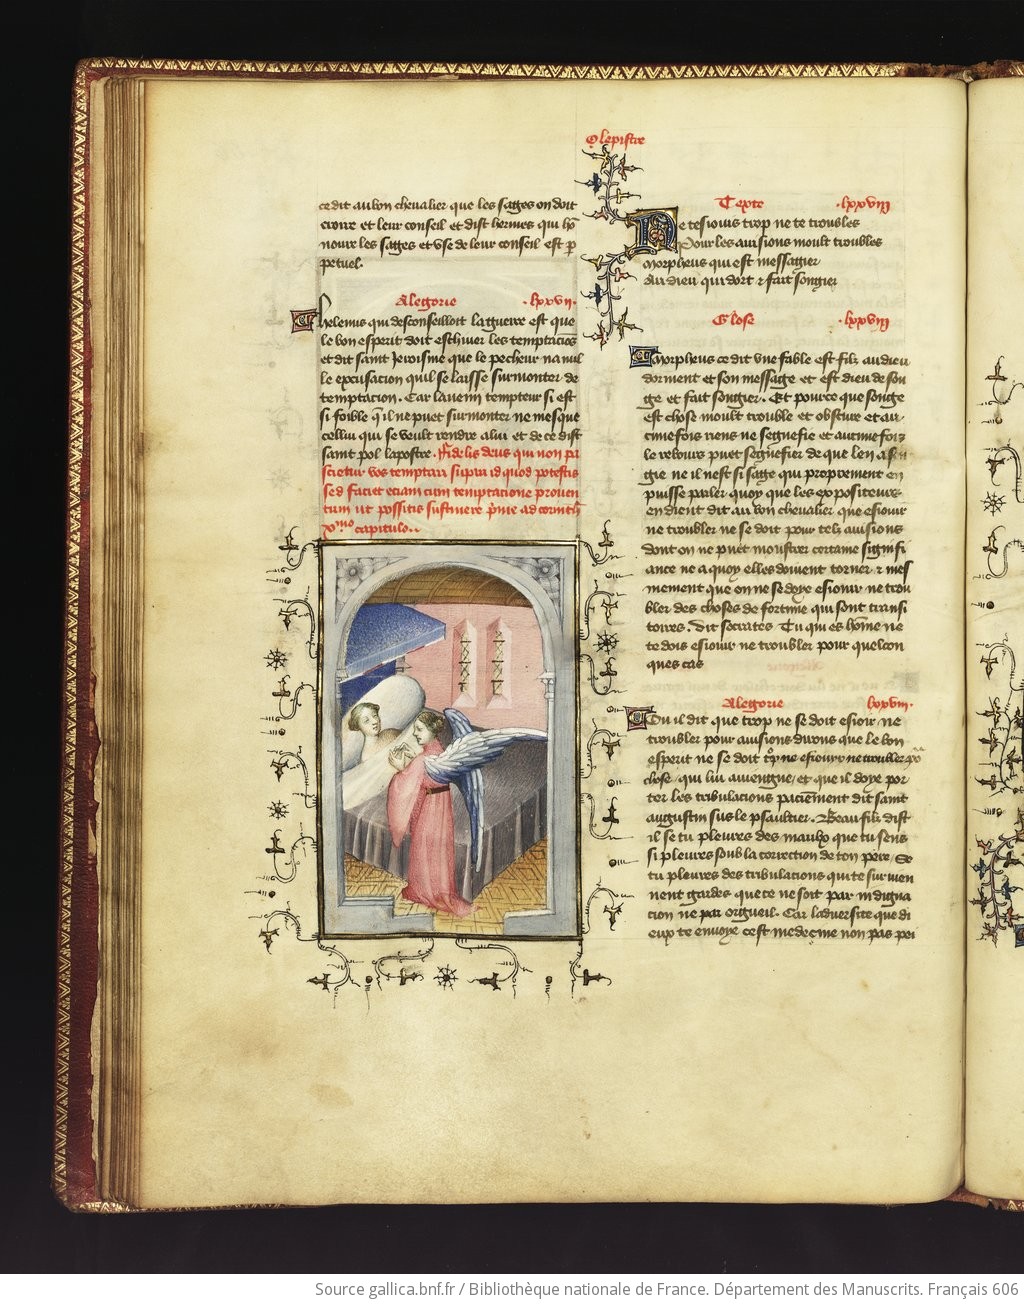 O lepistre
ce dit au bon chevalier que les sages on doit
croire et leur conseil et dist hermes qui
noure les sages et use de leur conseil est p
petuel.
Alegorie .lxxvii.
helenus qui desconseilloit la guerre est que
le bon esperit doit eschiver les temptacions
et dit saint Jeroisme que le pecheur na nul
le excusacion quil se laisse surmonter de
temptacion. Car lanemi tempteur si est
si foible q il ne puet surmonter ne mesque
cellui qui se veult rendre a lui et de ce dist
saint pol lapostre. fidelis deus qui non pa
scietur vos temptari supra id quod potestis
sed faciet eciam cum temptacione proven
tum ut possitis sustinere prime ad corinth
x.mo capitulo.
Texte .lxxviii
Ne tesiouis trop ne te troubles
Pour les avisions moult troubles
Morpheus qui est messagier
Au dieu qui dort & fait songier
Glose .lxxviii
Morpheus ce dit une fable est filz au dieu
dorment et son message et est dieu de son
ge et fait songier. Et pource que songe
est chose moult trouble et obscure et au
cunefois riens ne segnefie et aucunefoiz
le rebours puet segnefier de que len a son
gie ne il nest si sage qui proprement en
puisse parler quoy que les expositeurs
en dient dit au bon chevalier que esiouir
ne troubler ne se doit pour telz avisions
dont on ne puet moustrer certaine signifi
ance ne a quoy elles doivent torner & mes
mement que on ne se doye esiouir ne trou
bler des choses de fortune qui sont transi
toires. Dit socrates Tu qui es home ne
te dois esiouir ne troubler pour quelcon
ques cas
Alegorie lxxviii.
Ou il dit que trop ne se doit esioir ne
troubler pour avisions dirons que le bon
esperit ne se doit trop ne esiouir ne troubler po
chose qui lui aviengne et que il doye por
ter les tribulacions paciement dit saint
augustin sus le psaultier. Beau filz dist
il se tu pleures des maulx que tu sens
si pleures soubz la correction de ton pere. Se
tu pleures des tribulacions qui te survien
nent gardes que ce ne soit par indigna
cion ne par orgueil. Car ladversite que di
eux te envoye cest medecine non pas pei
Source gallica.bnf.fr / Bibliothèque nationale de France. Département des Manuscrits. Français 606